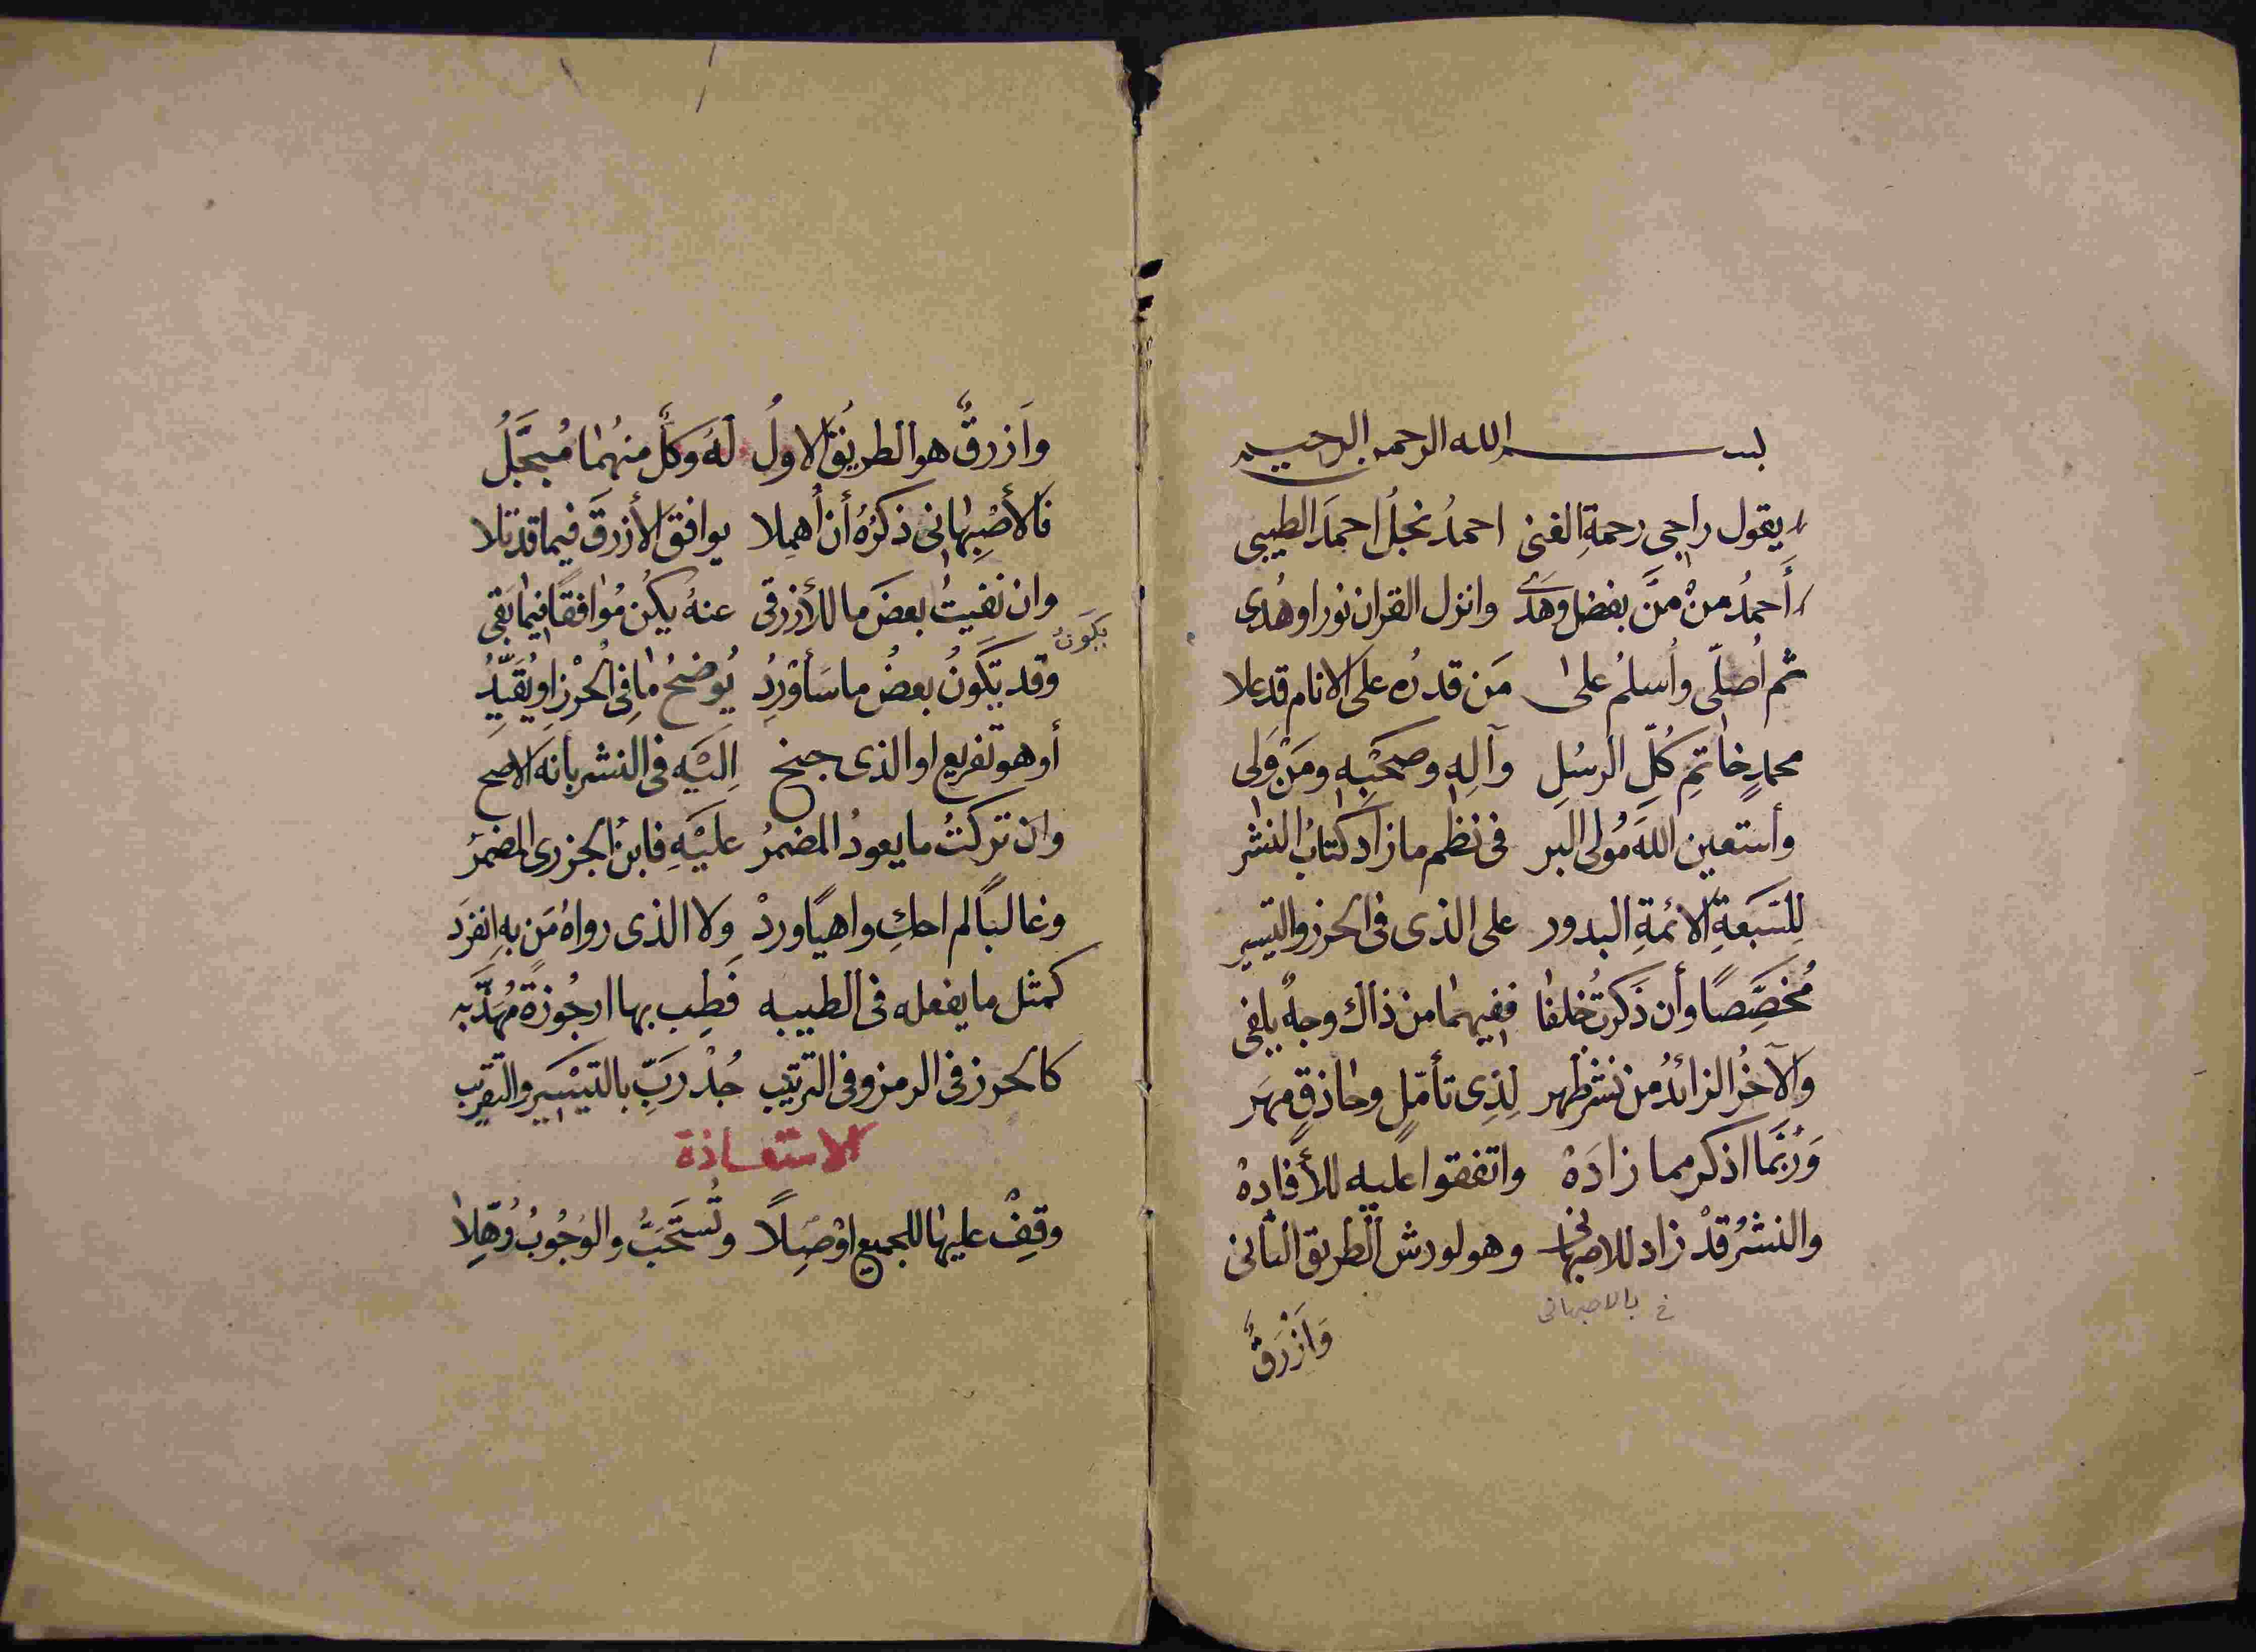 بسم الله الرحمن الرحيم
يقول راجي رحمةِ الغنى احمدُ نجلُ احمدَ الطيبي
أَحمدُ منْ منَّ بفضل وهَدَى وانزل القران نورا وهُدى
ثم أُصلّى وأُسلمُ على مَن قدرُه على الانام قد علا
محمدٍ خاتمِ كُلِّ الرسُلِ وآلِهِ وصَحْبِهِ ومَنْ وَلى
وأستعين اللهَ مُولى البر فى نظم ما زاد كتابُ النشر
لِلسَبعَةِ الائمةِ البدور على الذى فى الحرز والتيسير
مُخَصِّصًا وأن ذَكرتُ خُلفا ففيهما من ذاك وجهٌ يلفى
والآخرُ الزائدُ من نشرٍ ظهر لِذِى تأمّلٍ وحاذقٍ مهَر
وَرُبَّما اذكر مما زادَهْ واتفقوا عليه للأفادهْ
والنشرُ قدْ زاد للاصبهانى وهو لورش الطريق الثانى
خ بالاصبهانى
وَأَزْرَقٌ
وأَزرقٌ هو الطريقُ الاولُ لهُ وكلٌّ منهُما مُبجَّلُ
فالأصْبِهانى ذكرُهُ أن أُهمِلا يوافق الأزرقَ فيما قد تلا
وان نفيتُ بعضَ ما للأزرقى عنهُ يكُن مُوافقًا فيما بَقى
يكونُ
وقد يَكُونُ بعضُ ما سَأُورِدُ يُوضحُ ما فِى الحُرْزِ او يُقَيِّدُ
أو هو تفريع او الذى جنح اِلَيْهِ فى النشر بأنه الاصح
وان تركتُ ما يعودُ المضمرُ عليْهِ فابنُ الجزرى المضمرُ
وغالبًا لم احكِ واهيًا وردْ ولا الذى رواهُ مَن بهِ انفرَد
كمثل ما يفعله فى الطيبه فَطِب بها ارجُوزةً مُهَذَّبه
كالحرز فى الرمز وفى الترتيب جُدْ رَبِّ بالتيْسير والتقريب
الاستعاذة
وقِفْ عليها للجميع اوْ صِلًا وتُستَحَبُّ والوُجُوبُ وُهِّلا